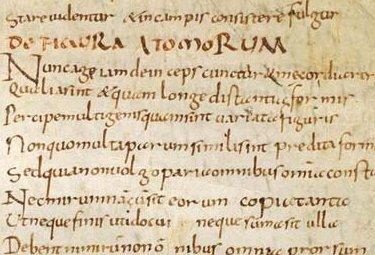 Stare uidentur & incampis consistere fulgur
DE FIGURA ATOMORUM
Nuncage iam dein ceps
Qualiasint & quam longe distantia for mis
Percipe multigenis quamsint uariata figuris
Nonquo multa parum similisint predita form
Sed quia nonuolgo paria omnibus omnia consta
Nec mirum nācūsit eorum copia tanta
Ut neque finis uti docui neque summasit ulla
Debent nimirum nonom nibus omnia prorsum